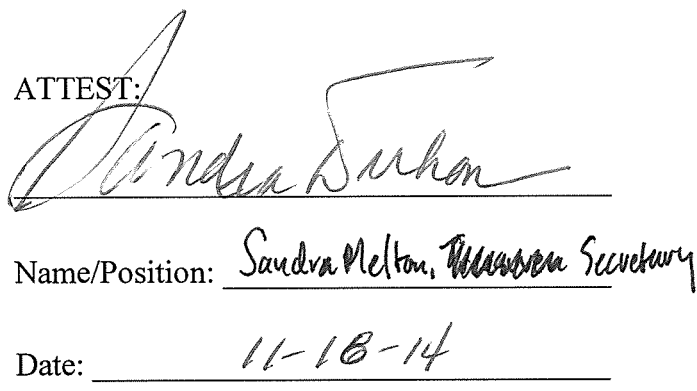 ATTEST:
Sandra
Name/Position: Sandra Melton, Secretary
Date: 11-18-14